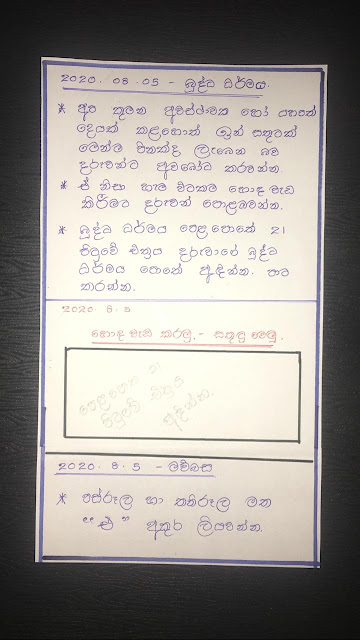 2020. 08. 05 - බුද්ධ ධර්මය.
* අප කුමන අවස්ථාවක හෝ යහපත්
දෙයක් කළහොත් ඉන් සතුටක්
මෙන්ම පිනක්ද ලැබෙන බව
දරුවන්ට අවබෝධ කරවන්න.
* ඒ නිසා හැම විටකම හොඳ වැඩ
කිරීමට දරුවන් පොළඹවන්න.
* බුද්ධ ධර්මය පෙළ පොතේ 21
පිටුවේ චිත්‍රය දරුවාගේ බුද්ධ
ධර්මය පොතේ අඳින්න. පාට
කරන්න.
2020. 8. 5
හොඳ වැඩ කරමු. - සතුටු වෙමු.
පෙළපොතේ 21
පිටුවේ චිත්‍රය
අඳින්න.
2020. 8. 5 - මව්බස
* පස්රූල හා තනිරූල මත
"එ" අකුර ලියවන්න.